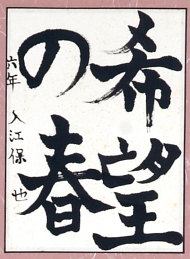 希望
の春
六年 入江保也